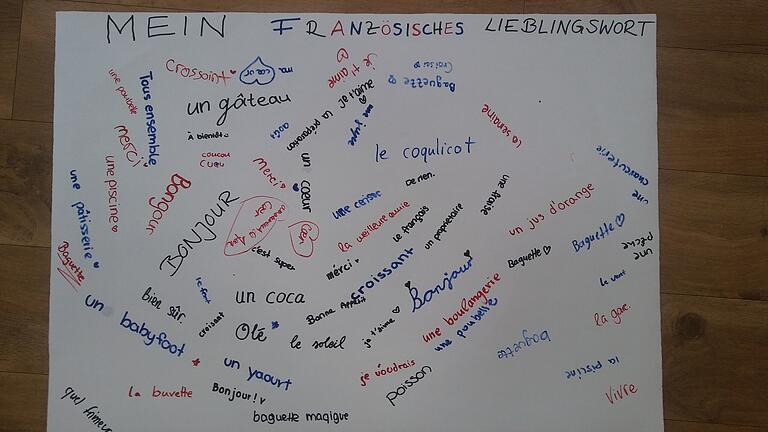 MEIN FRANZÖSISCHES LIEBLINGSWORT
Crossaint
ma cœur
je t'aime
Croissant
Baguezze
une poubelle
Tous ensemble
un gâteau
je t'aime
une jupe
la semaine
À bientôt
un préparation
merci
coucou
cuqu
le coqulicot
une charcuterie
une piscine
Merci
un coeur
De rien.
Bonjour
une cerise
une pâtisserie
BONJOUR
Cœr
Cœr
la weilleure amie
le français
un propriétaire
un jus d'orange
Baguette
c'est super
Baguette
Baguette
une pêche
mérci
croissant
Bonjour
le vent
bien sûr.
un coca
Bonne Appétit
un babyfoot
croissant
Olé
le soleil
je t'aime
une boulangerie
une poubelle
la gare.
baguette
un yaourt
je voudrais
la piscine
la buvette
Bonjour!
poisson
vivre
quel frimeur
baguette magique